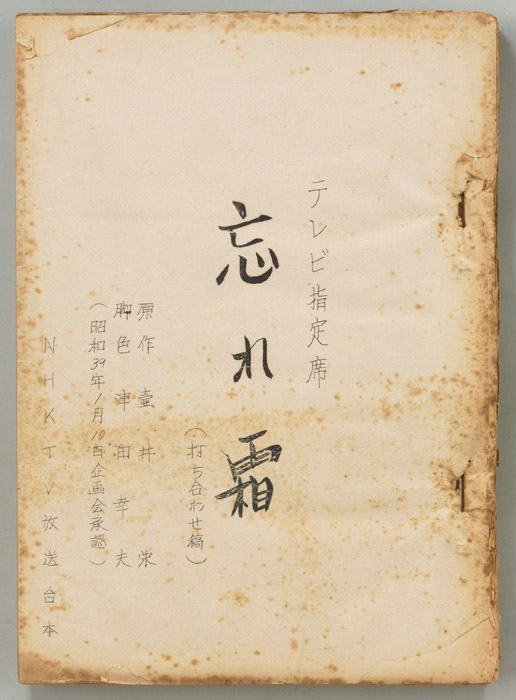 テレビ指定席
忘れ霜
(打ち合わせ稿)
原作 壷井 栄
脚色 津田幸夫
(昭和39年1月10日企画会承認)
NHKTV放送台本